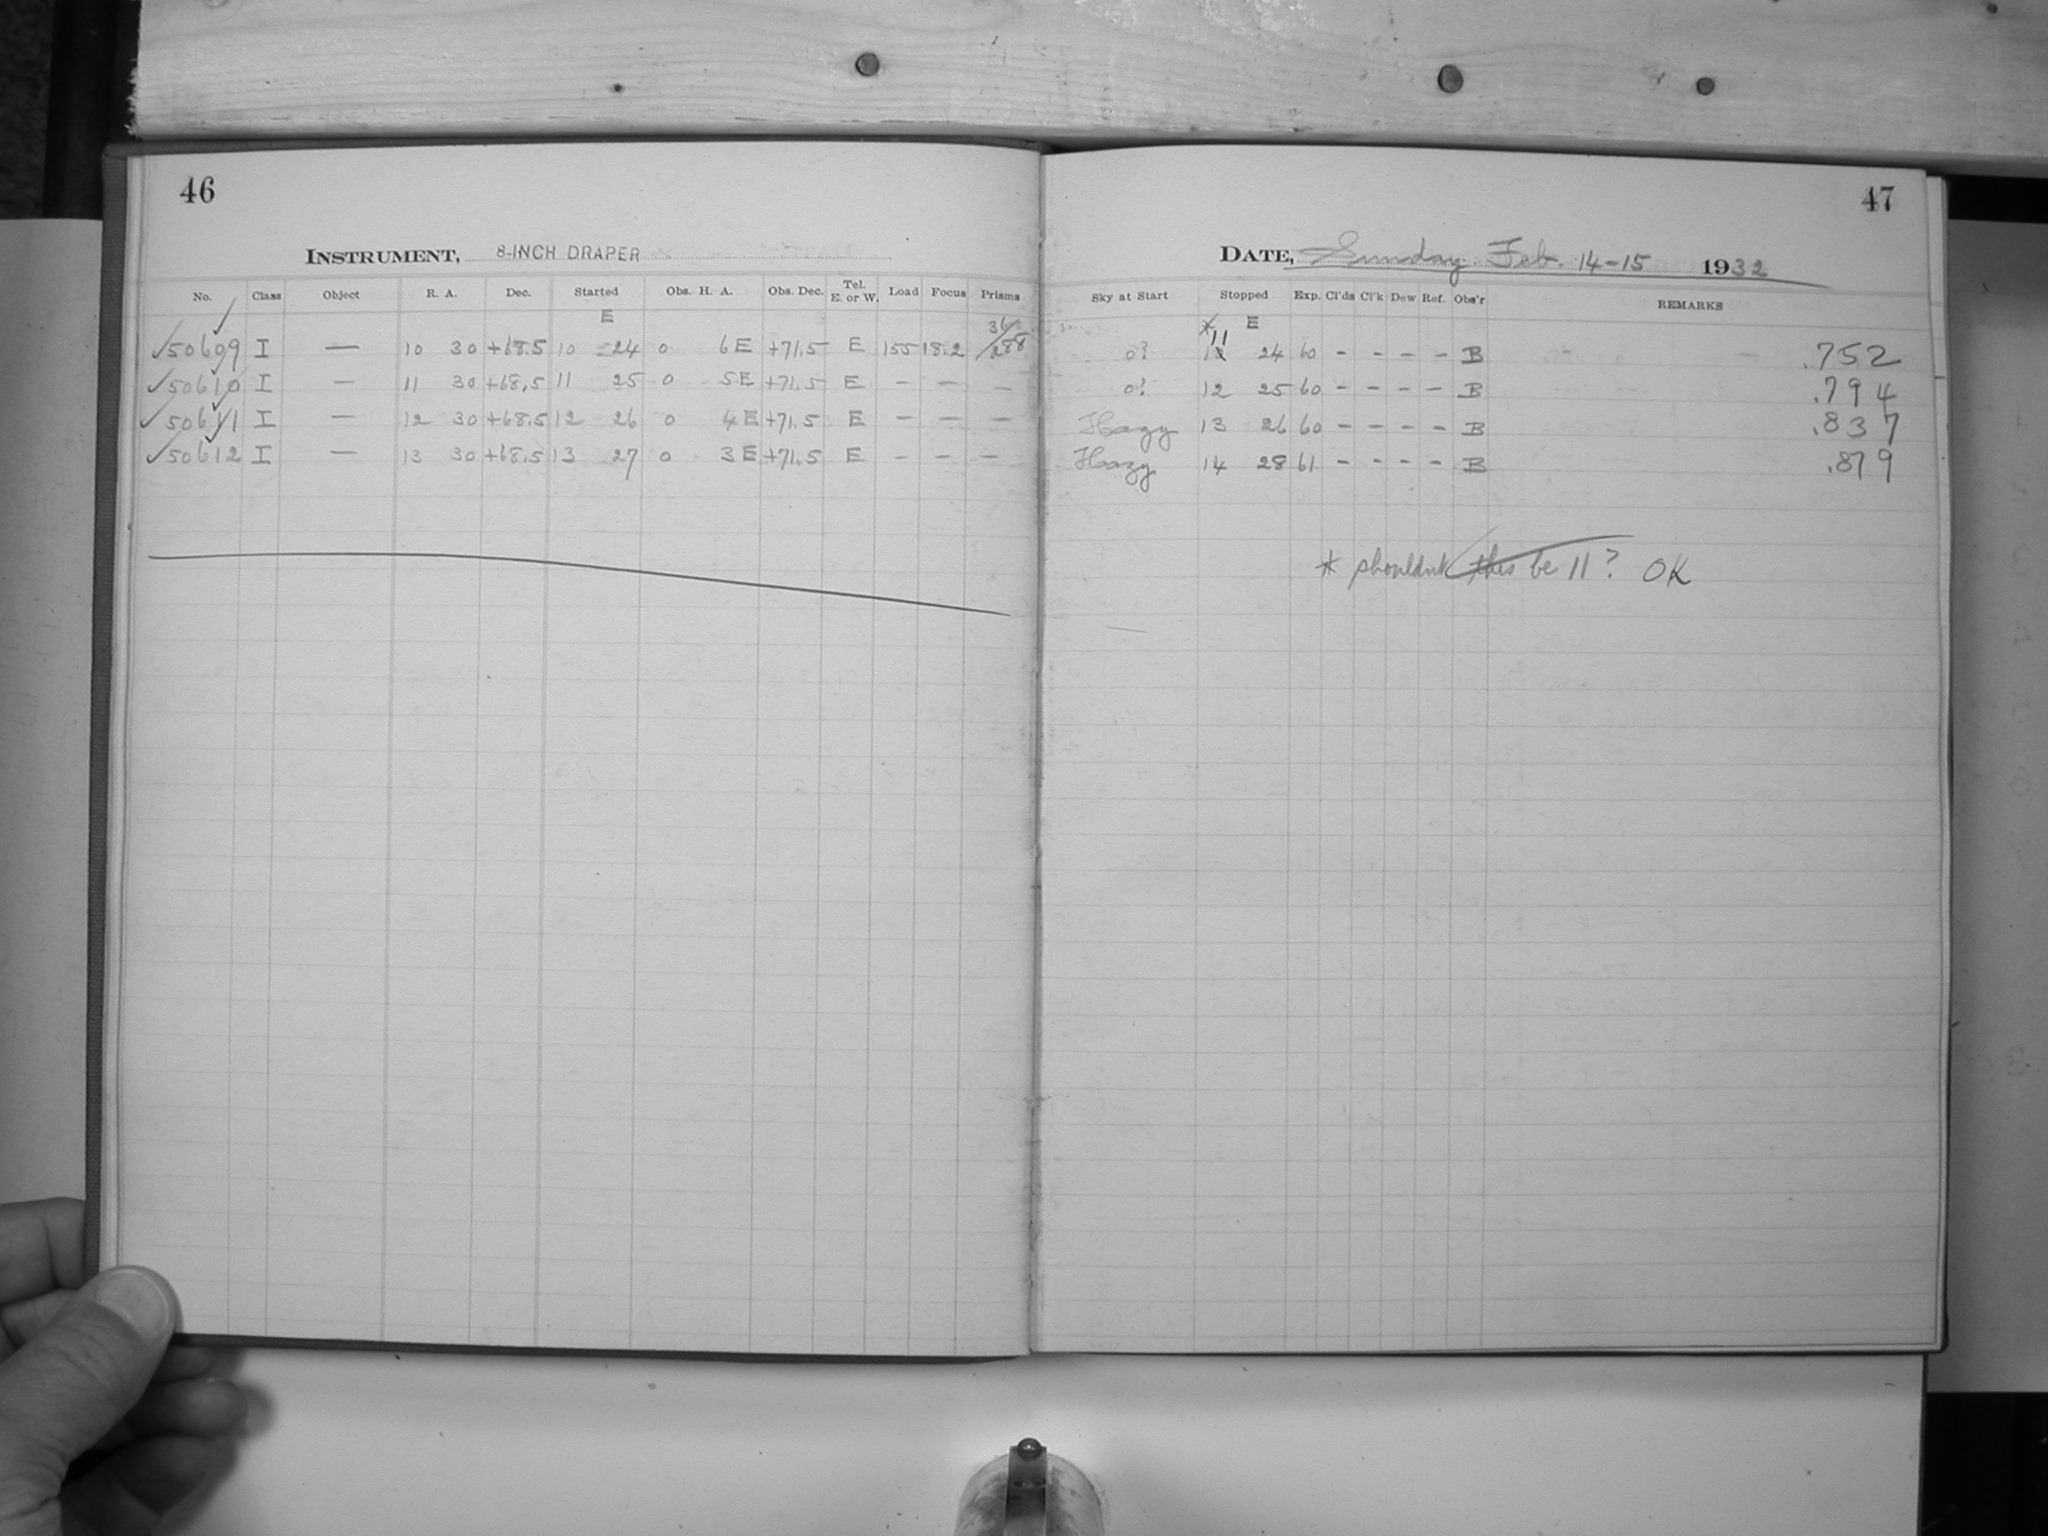 46
INSTRUMENT, 8-INCH DRAPER
No. Class Object R. A. Dec. Started Obs. H. A. Obs. Dec. Tel. E. or W. Load Focus Prisms
E
50609 I — 10 30 +68.5 10 24 0 6E +71.5 E 155 18.2 36/288
50610 I — 11 30 +68.5 11 25 0 5E +71.5 E — — —
50611 I — 12 30 +68.5 12 26 0 4E +71.5 E — — —
50612 I — 13 30 +68.5 13 27 0 3E +71.5 E — — —
47
DATE, Sunday Feb. 14-15 1932
Sky at Start Stopped Exp. Cl'ds Cl'k Dew Ref. Obs'r REMARKS
* E
0? 11 24 60 - - - - B .752
0? 12 25 60 - - - - B .794
Hazy 13 26 60 - - - - B .837
Hazy 14 28 61 - - - - B .879
* shouldnt this be 11? OK